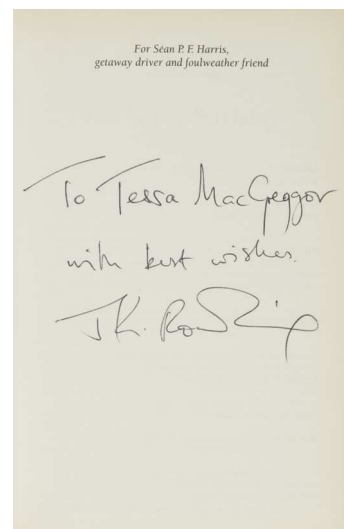 For Seán P. F. Harris,
getaway driver and foulweather friend
To Tessa MacGreggor
with best wishes.
J.K. Rowling